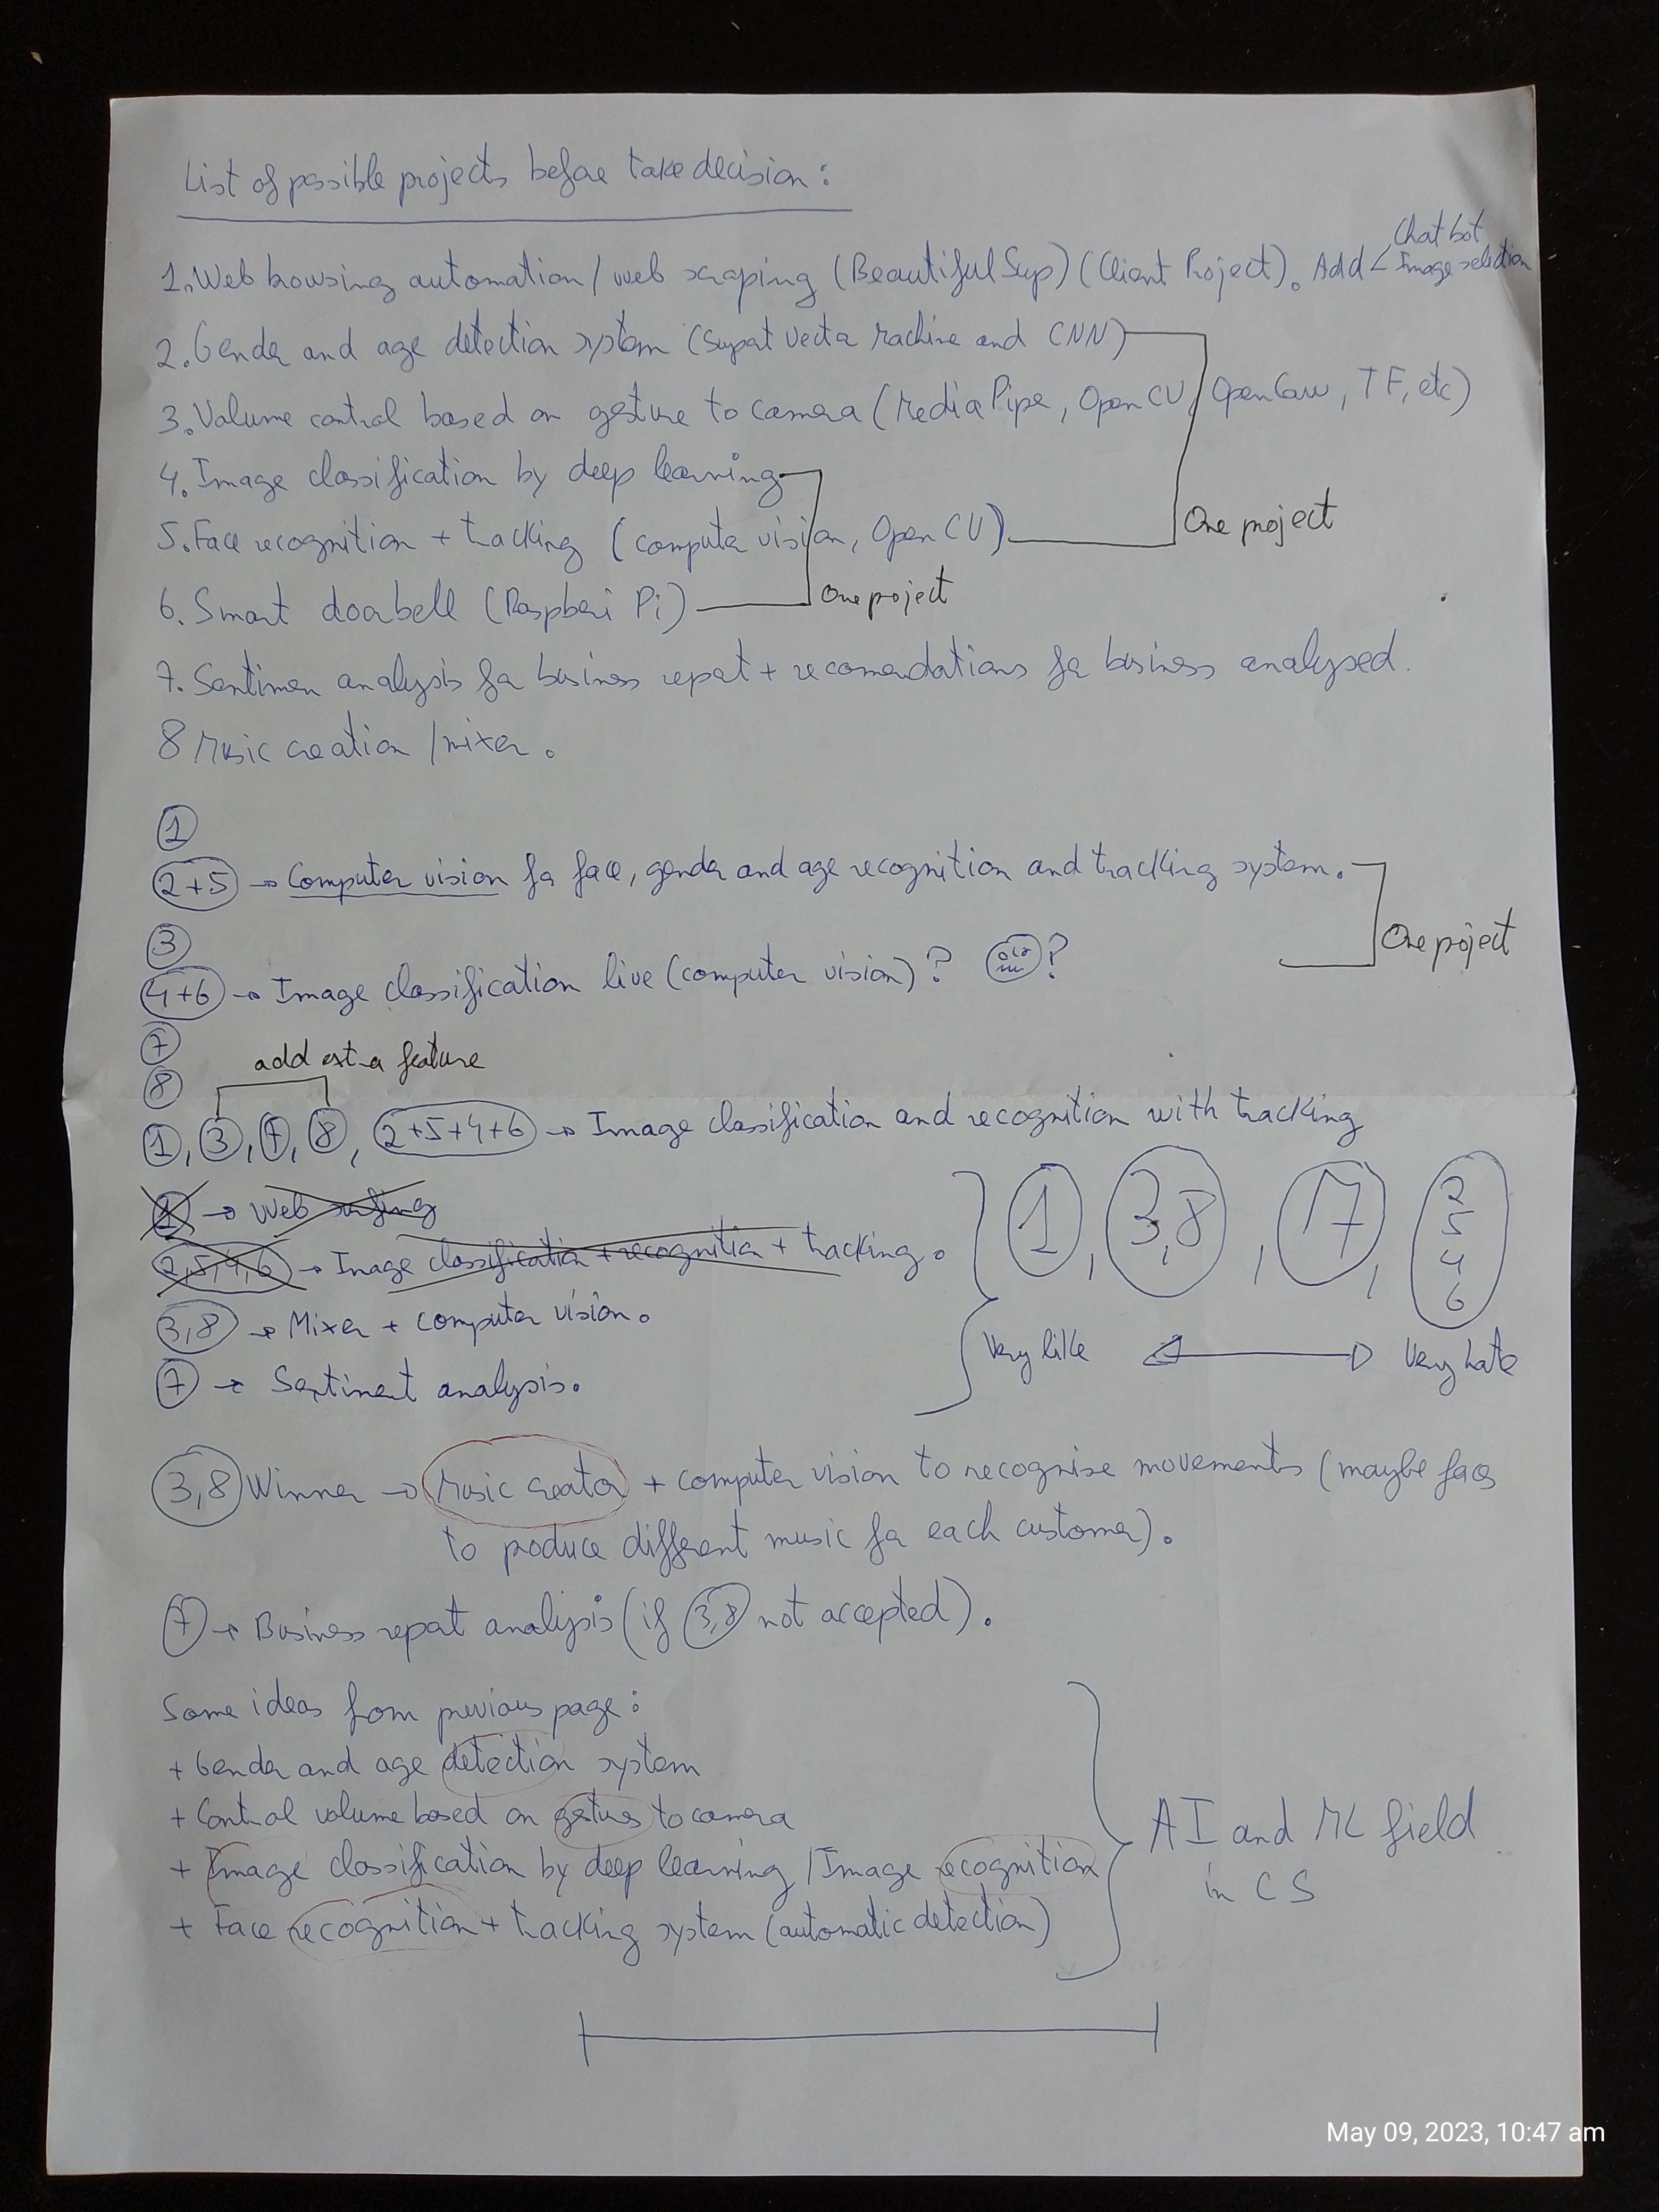 List of possible projects before take decision:
1. Web browsing automation / web scraping (BeautifulSup) (Client Project). Add < Chat bot
Image selection
2. Gender and age detection system (Suport Vector Machine and CNN)
3. Volume control based on gesture to camera (MediaPipe, OpenCV, OpenCaw, TF, etc)
4. Image classification by deep learning
5. Face recognition + tracking (computer vision, OpenCV)
One project
6. Smart doorbell (Raspberi Pi)
One project
7. Sentimen analysis for business report + recomendations for business analysed.
8 Music creation / mixer.
1
2+5 → Computer vision for face, gender and age recognition and tracking system.
3
One project
4+6 → Image classification live (computer vision)? ?
7
add extra feature
8
1, 3, 7, 8, 2+5+4+6 → Image classification and recognition with tracking
1 → Web surfing
2,5,4,6 → Image classification + recognition + tracking.
1, 3,8, 17, 2 5 4 6
3,8 → Mixer + computer vision.
Very like ↔ Very hate
7 → Sentiment analysis.
3,8 Winner → Music creator + computer vision to recognise movements (maybe faces
to produce different music for each customer).
7 → Business report analysis (if 3,8 not accepted).
Some ideas from previous page:
+ Gender and age detection system
+ Control volume based on gestures to camera
+ Image classification by deep learning / Image recognition
+ Face recognition + tracking system (automatic detection)
AI and ML field
in CS
May 09, 2023, 10:47 am